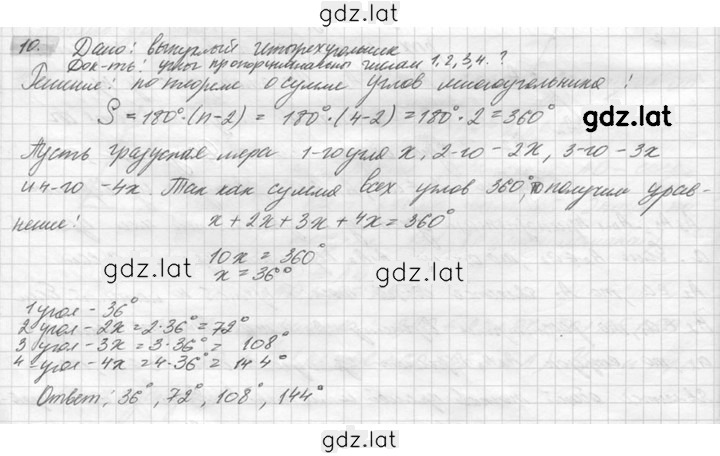 gdz.lat
10. Дано: выпуклый четырехугольник
Док-ть: углы пропорциональны числам 1,2,3,4. ?
Решение: по теореме о сумме углов многоугольника:
S = 180°·(n-2) = 180°·(4-2) = 180°·2 = 360°
gdz.lat
Пусть градусная мера 1-го угла x, 2-го - 2x, 3-го - 3x
и 4-го - 4x. Так как сумма всех углов 360°, то получим урав-
нение:
x + 2x + 3x + 4x = 360°
10x = 360°
x = 36°
gdz.lat
gdz.lat
1 угол - 36°
2 угол - 2x = 2·36° = 72°
3 угол - 3x = 3·36° = 108°
4 -угол - 4x = 4·36° = 144°
Ответ: 36°, 72°, 108°, 144°
gdz.lat